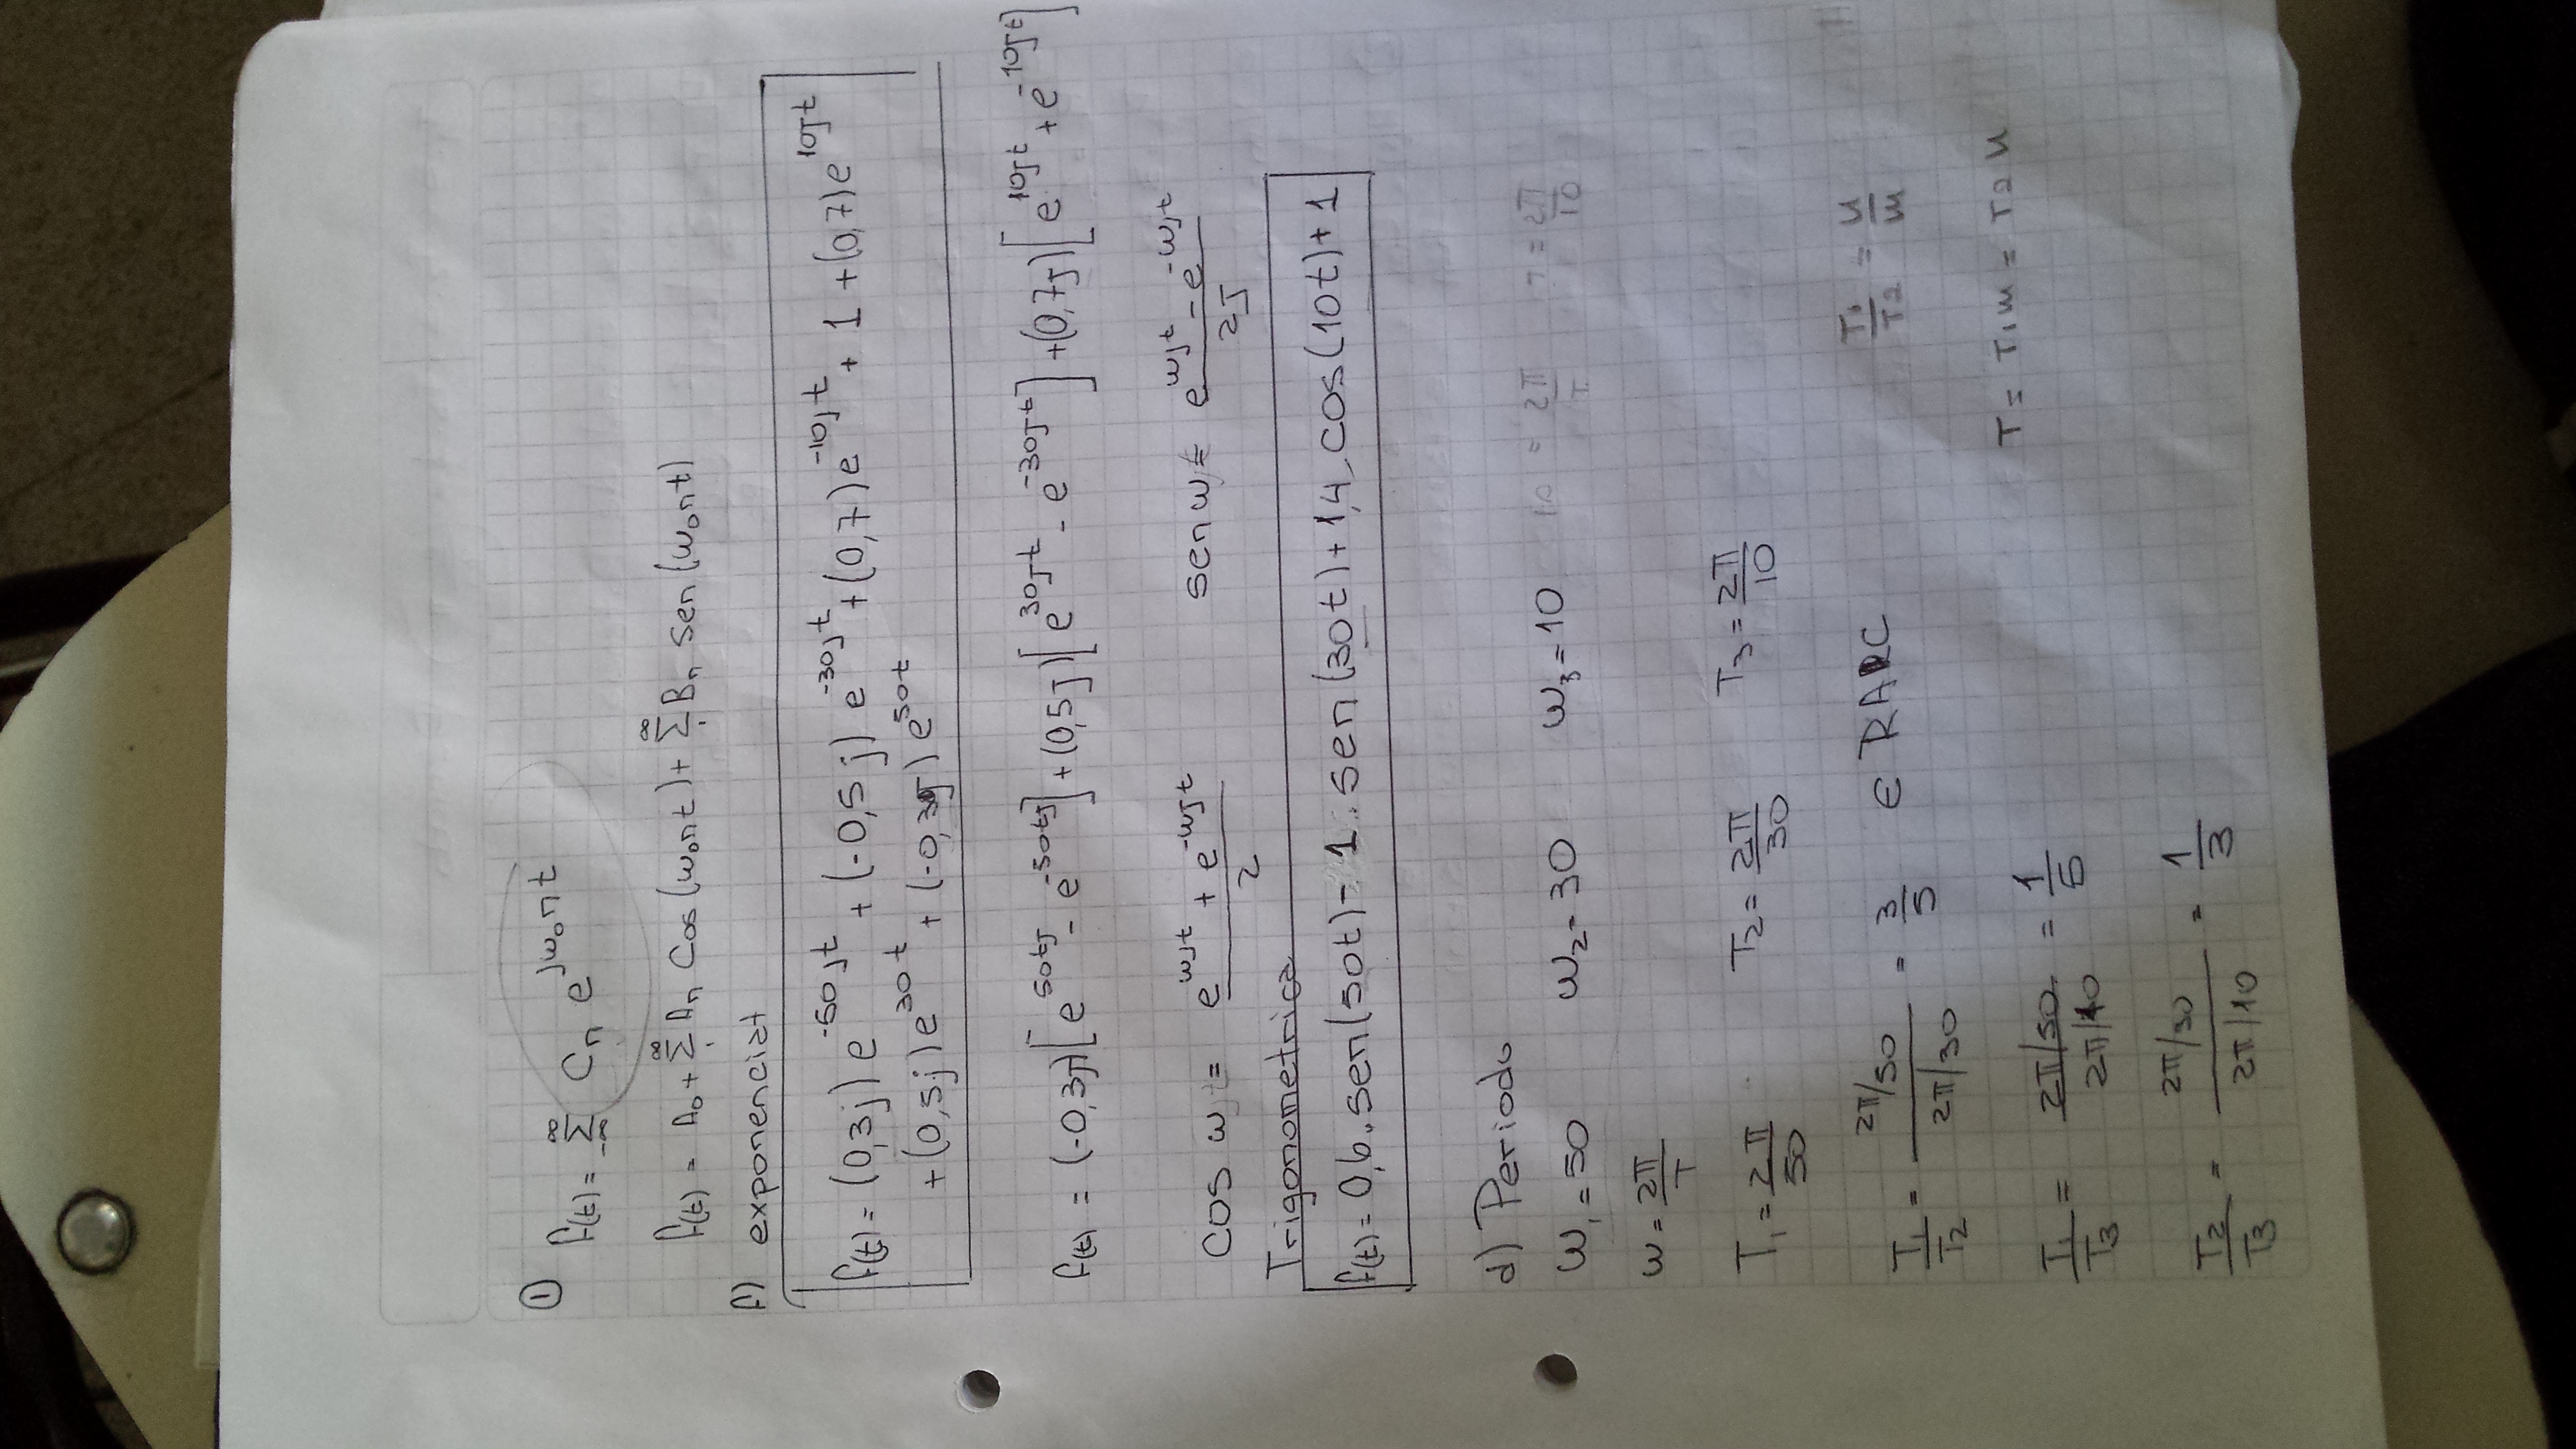 ① f(t) = ∞ Σ -∞ Cn e^(jω₀nt)
f(t) = A₀ + ∞ Σ 1 An Cos(ω₀nt) + ∞ Σ 1 Bn sen(ω₀nt)
A) exponencial
f(t) = (0,3j) e^(-50jt) + (-0,5j) e^(-30jt) + (0,7) e^(-10jt) + 1 + (0,7) e^(10jt)
+ (0,5j) e^(30t) + (-0,3j) e^(50t)
f(t) = (-0,3j) [e^(50tj) - e^(-50tj)] + (0,5j) [e^(30jt) - e^(-30jt)] + (0,7j) [e^(10jt) + e^(-10jt)]
cos ω = (e^(ωjt) + e^(-ωjt)) / 2 sen ω = (e^(ωjt) - e^(-ωjt)) / 2J
Trigonometrica
f(t) = 0,6.sen(50t) - 1.sen(30t) + 1,4 cos(10t) + 1
d) Periodo
ω₁ = 50 ω₂ = 30 ω₃ = 10 10 = 2π/T T = 2π/10
ω = 2π/T
T₁ = 2π/50 T₂ = 2π/30 T₃ = 2π/10
T₁/T₂ = (2π/50)/(2π/30) = 3/5 ∈ T₁/T₂ = n/m
T = T₁m = T₂n
T₁/T₃ = (2π/50)/(2π/10) = 1/5
T₂/T₃ = (2π/30)/(2π/10) = 1/3